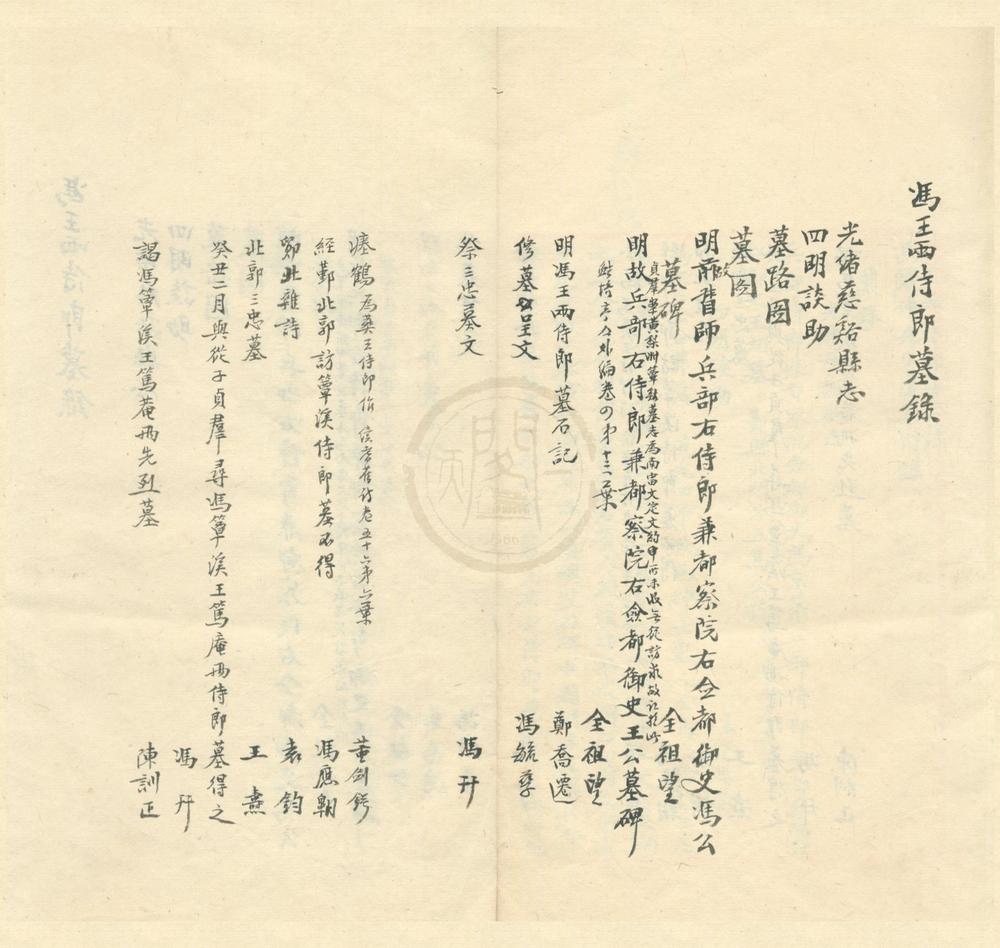 馮王两侍郎墓錄
光緒慈谿縣志
四明談助
墓路圖
墓图
明故督師兵部右侍郎兼都察院右僉都御史馮公
墓碑 全祖望
貞羣案黃梨洲簟谿墓志為南雷文定文約中所未收無從訪求故記於此
明故兵部右侍郎兼都察院右僉都御史王公墓碑
鮚埼亭集外編卷四第十三葉 全祖望
明馮王兩侍郎墓石記 鄭喬遷
修墓呈文 馮毓孳
祭三忠墓文 馮幵
瘞鶴為葬王侍郎作 董劍鍔
經鄞北郭訪簟溪侍郎墓不得 馮應翱
鄮北雜詩 袁鈞
北郭三忠墓 王熹
癸丑二月與從子貞羣尋馮簟溪王篤庵兩侍郎墓得之
馮幵
謁馮簟溪王篤菴兩先烈墓 陳訓正